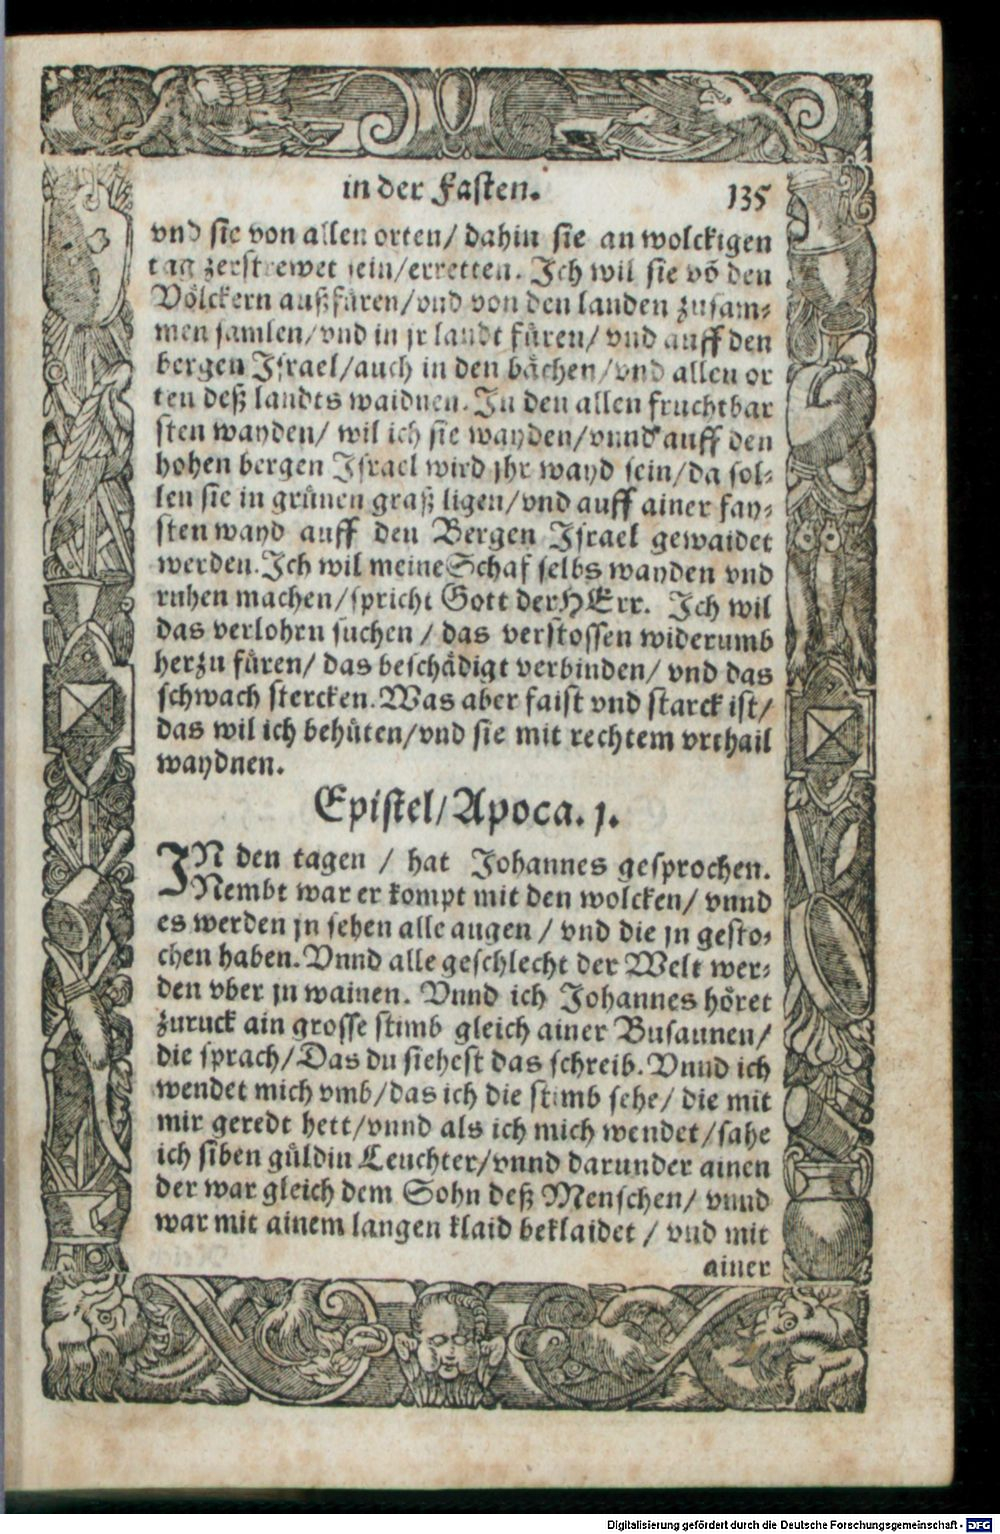 in der Fasten. 135
vnd sie von allen orten/ dahin sie an wolckigen
tag zerstrewet sein/erretten. Ich wil sie võ den
Völckern außfüren/vnd von den landen zusam⸗
men samlen/vnd in jr landt füren/ vnd auff den
bergen Israel/auch in den bächen/vnd allen or
ten deß landts waidnen. In den allen fruchtbar
sten wayden/ wil ich sie wayden/vnnd auff den
hohen bergen Israel wird jhr wayd sein/da sol⸗
len sie in grünen graß ligen/vnd auff ainer fay⸗
sten wayd auff den Bergen Israel gewaidet
werden. Ich wil meine Schaf selbs wayden vnd
ruhen machen/spricht Gott der HErr. Ich wil
das verlohrn suchen / das verstossen widerumb
herzu füren/ das beschädigt verbinden/ vnd das
schwach stercken. Was aber faist vnd starck ist/
das wil ich behüten/vnd sie mit rechtem vrthail
waydnen.
Epistel/Apoca. j.
IN den tagen / hat Johannes gesprochen.
Nembt war er kompt mit den wolcken/ vnnd
es werden jn sehen alle augen / vnd die jn gesto⸗
chen haben. Vnnd alle geschlecht der Welt wer⸗
den vber jn wainen. Vnnd ich Johannes höret
zuruck ain grosse stimb gleich ainer Busaunen/
die sprach/Das du siehest das schreib. Vnnd ich
wendet mich vmb/das ich die stimb sehe/ die mit
mir geredt hett/vnnd als ich mich wendet/sahe
ich siben güldin Leuchter/vnnd darunder ainen
der war gleich dem Sohn deß Menschen/ vnnd
war mit ainem langen klaid beklaidet / vnd mit
ainer
Digitalisierung gefördert durch die Deutsche Forschungsgemeinschaft - DFG